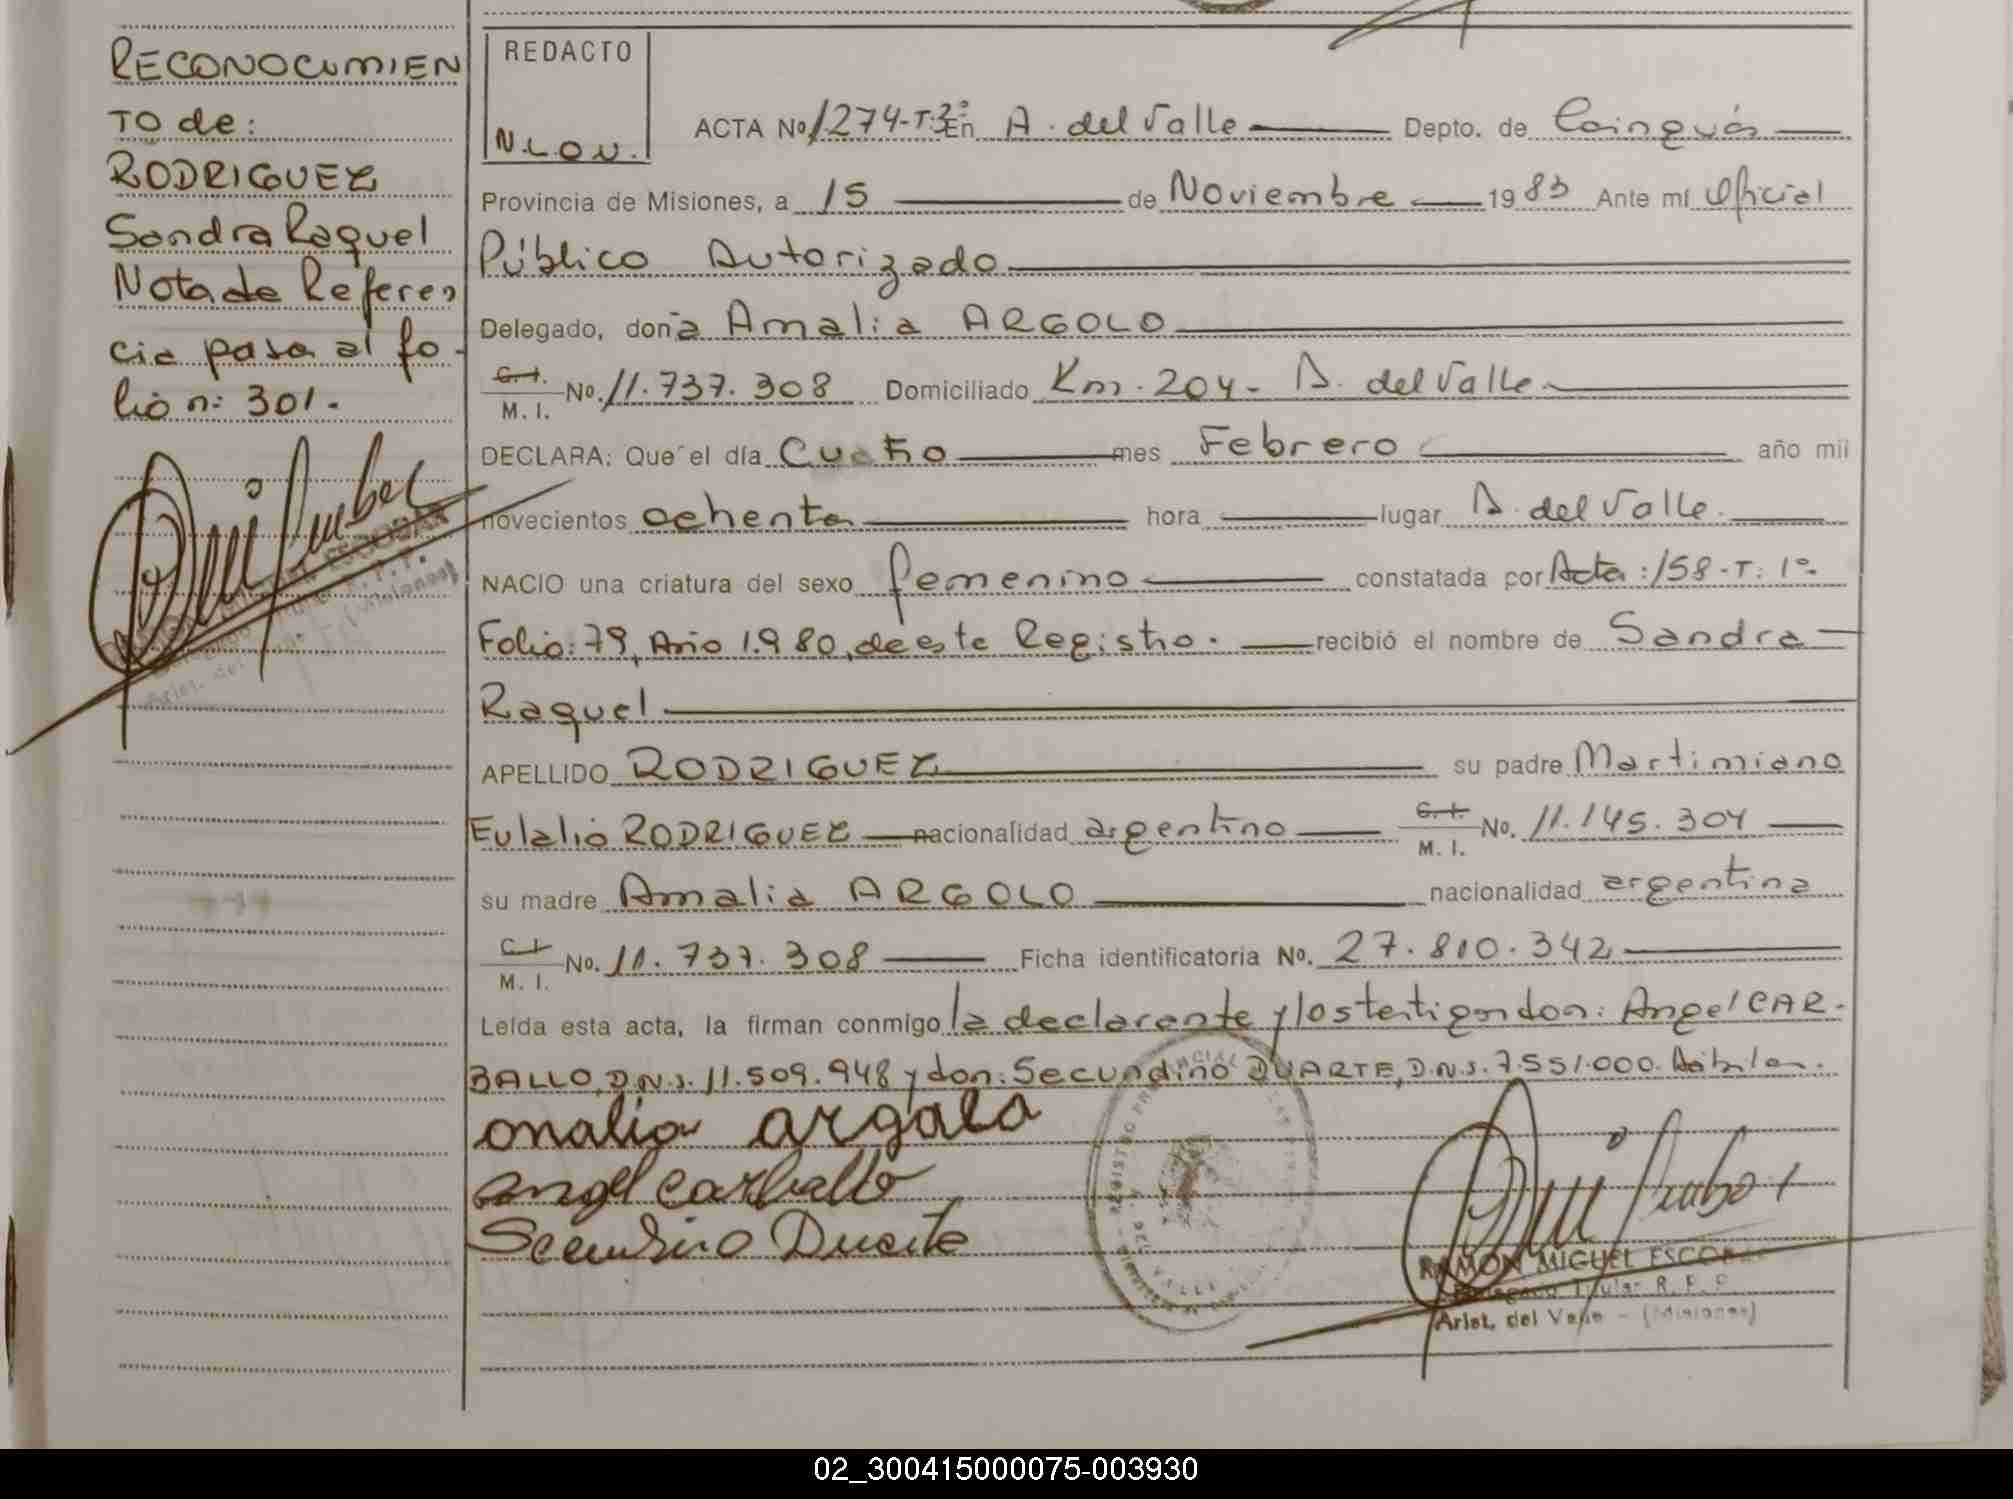 RECONOCIMIEN
TO de:
RODRIGUEZ
Sandra Raquel
Nota de Referen
cia pasa al fo-
lio n: 301.
REDACTO
N.L.O.V.
ACTA Nº 1274-T:3º En A. del Valle Depto. de Cainguás
Provincia de Misiones, a 15 de Noviembre 1983 Ante mí Oficial
Público Autorizado
Delegado, doña Amalia ARGOLO
C.I. M. I. No. 11.737.308 Domiciliado Km. 204- A. del Valle.
DECLARA: Que el día Cuatro mes Febrero año mil
novecientos ochenta hora lugar A. del Valle.
NACIO una criatura del sexo femenino constatada por Acta: 158-T: 1º
Folio: 79, Año 1.980, de este Registro. recibió el nombre de Sandra
Raquel
APELLIDO RODRIGUEZ su padre Martimiano
Eulalio RODRIGUEZ nacionalidad argentino C.I. M. I. No. 11.145.304
su madre Amalia ARGOLO nacionalidad argentina
C.I. M. I. No. 11.737.308 Ficha identificatoria No. 27.810.342
Leída esta acta, la firman conmigo la declarante y los testigos don: Angel CAR-
BALLO, D.N.I. 11.509.948 y don: Secundino DUARTE, D.N.I. 7.551.000. Hábiles.
amalia argalo
angel carballo
Secundino Duarte
RAMON MIGUEL ESCOBAR
Delegado Titular R. P. P.
Arist. del Valle - (Misiones)
02_300415000075-003930